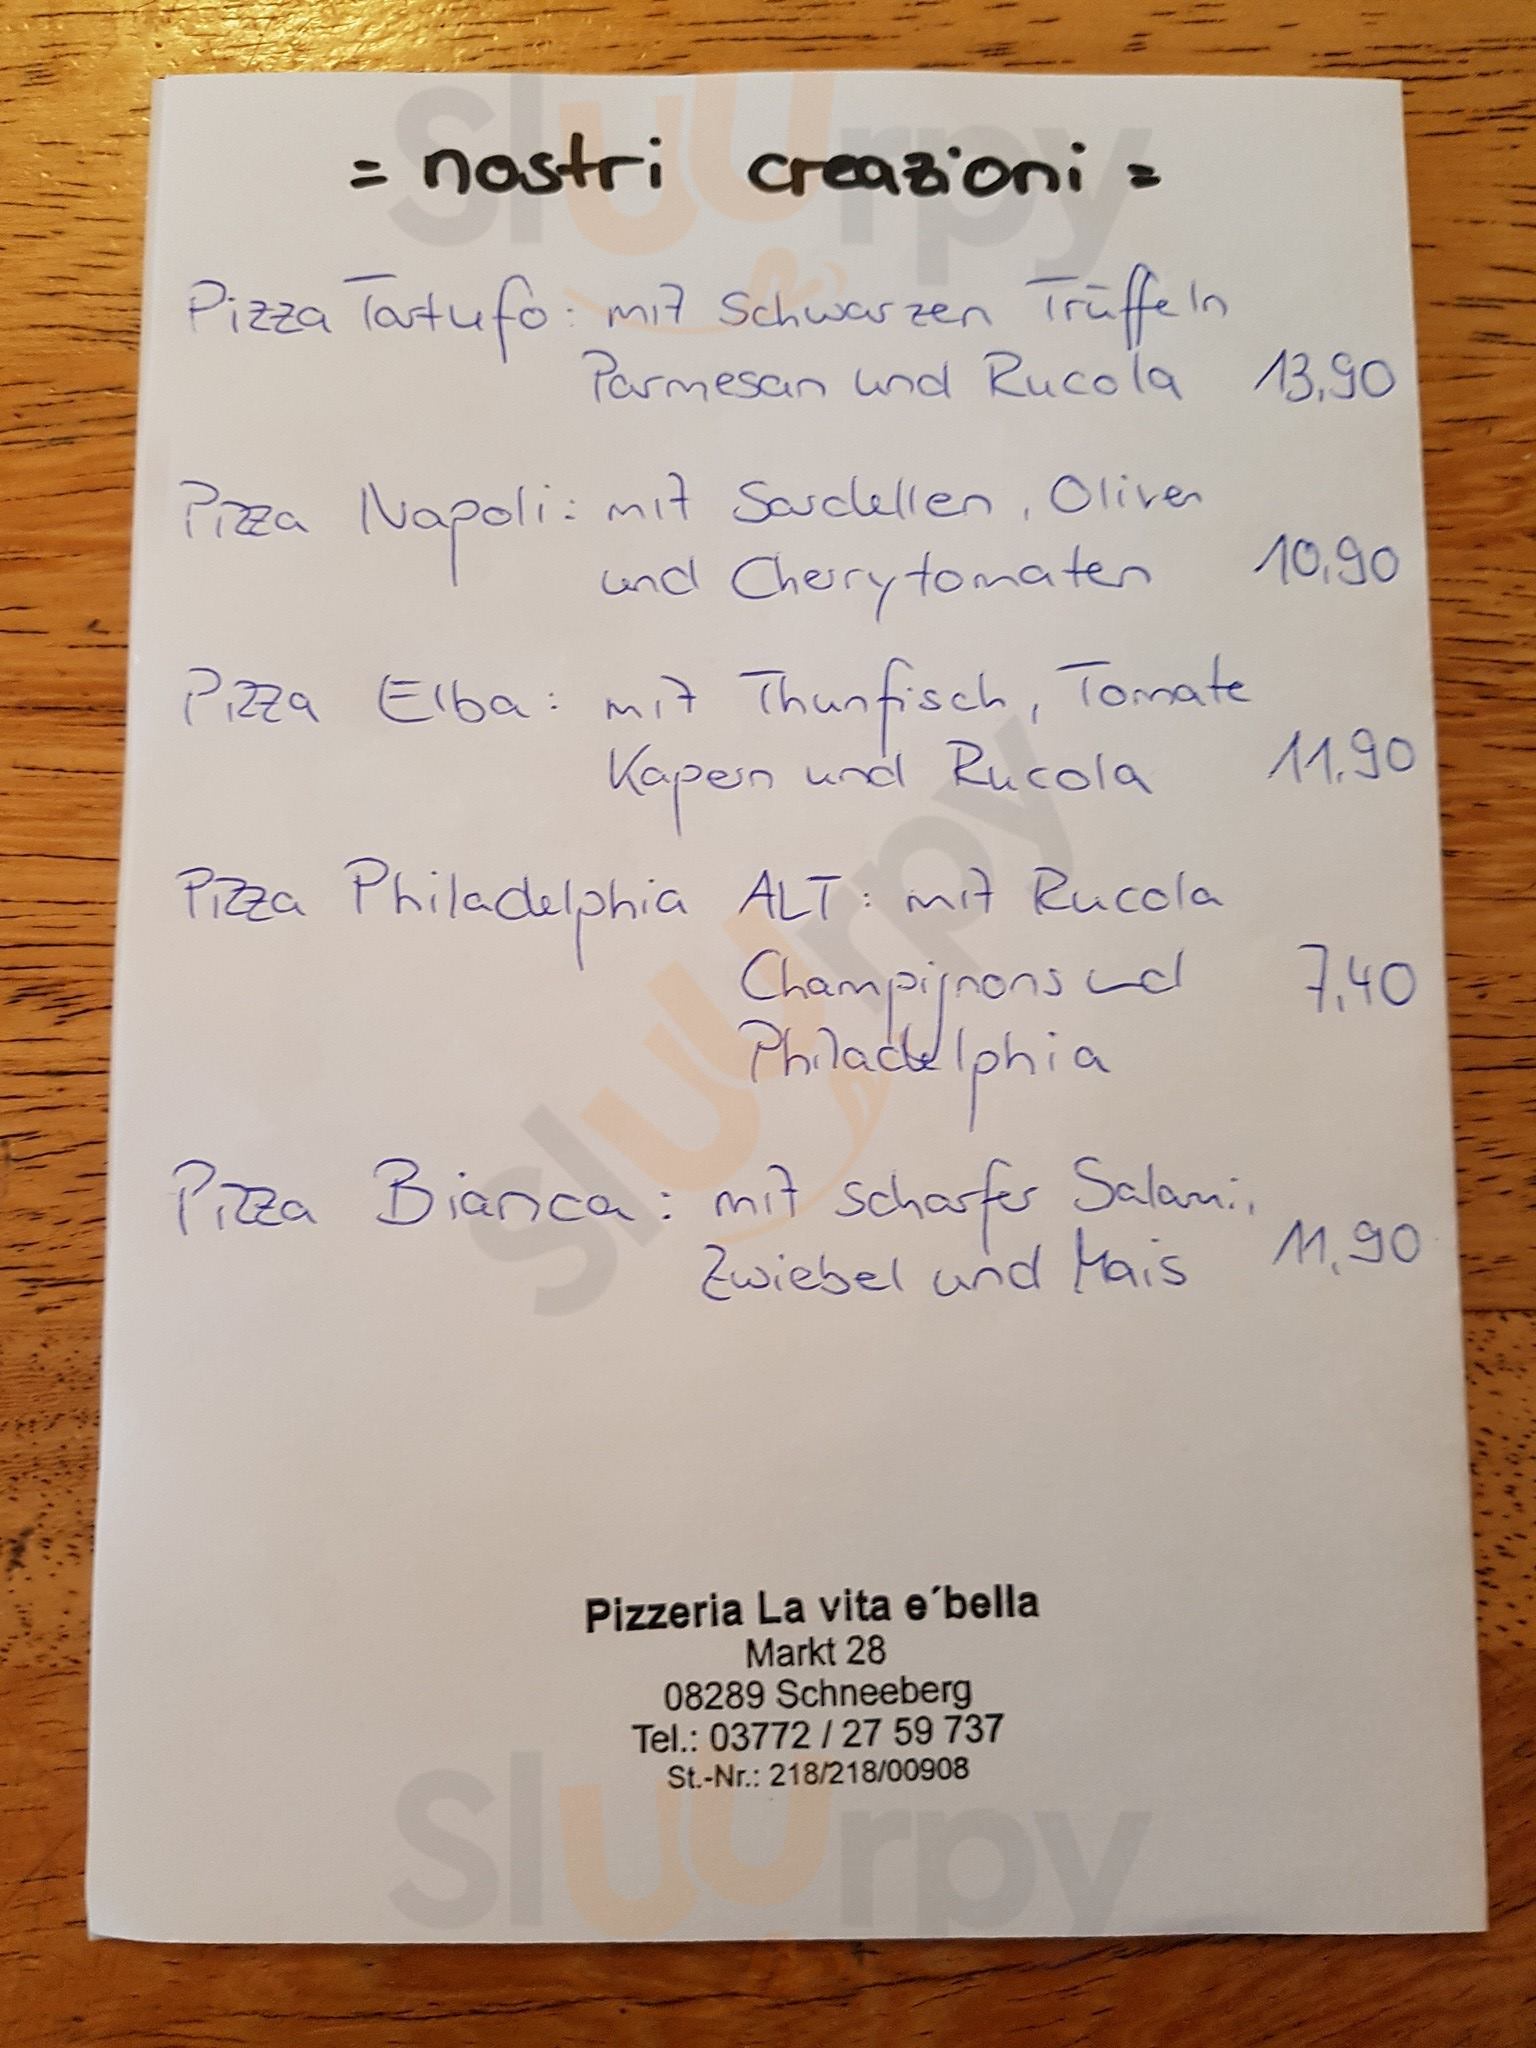 = nostri creazioni =
Pizza Tartufo: mit schwarzen Trüffeln
Parmesan und Rucola 13,90
Pizza Napoli: mit Sardellen, Oliven
und Cherrytomaten 10,90
Pizza Elba: mit Thunfisch, Tomate
Kapern und Rucola 11,90
Pizza Philadelphia ALT: mit Rucola
Champignons und 7,40
Philadelphia
Pizza Bianca: mit scharfer Salami,
Zwiebel und Mais 11,90
Pizzeria La vita e´bella
Markt 28
08289 Schneeberg
Tel.: 03772 / 27 59 737
St.-Nr.: 218/218/00908
Sluurpy
Sluurpy
Sluurpy